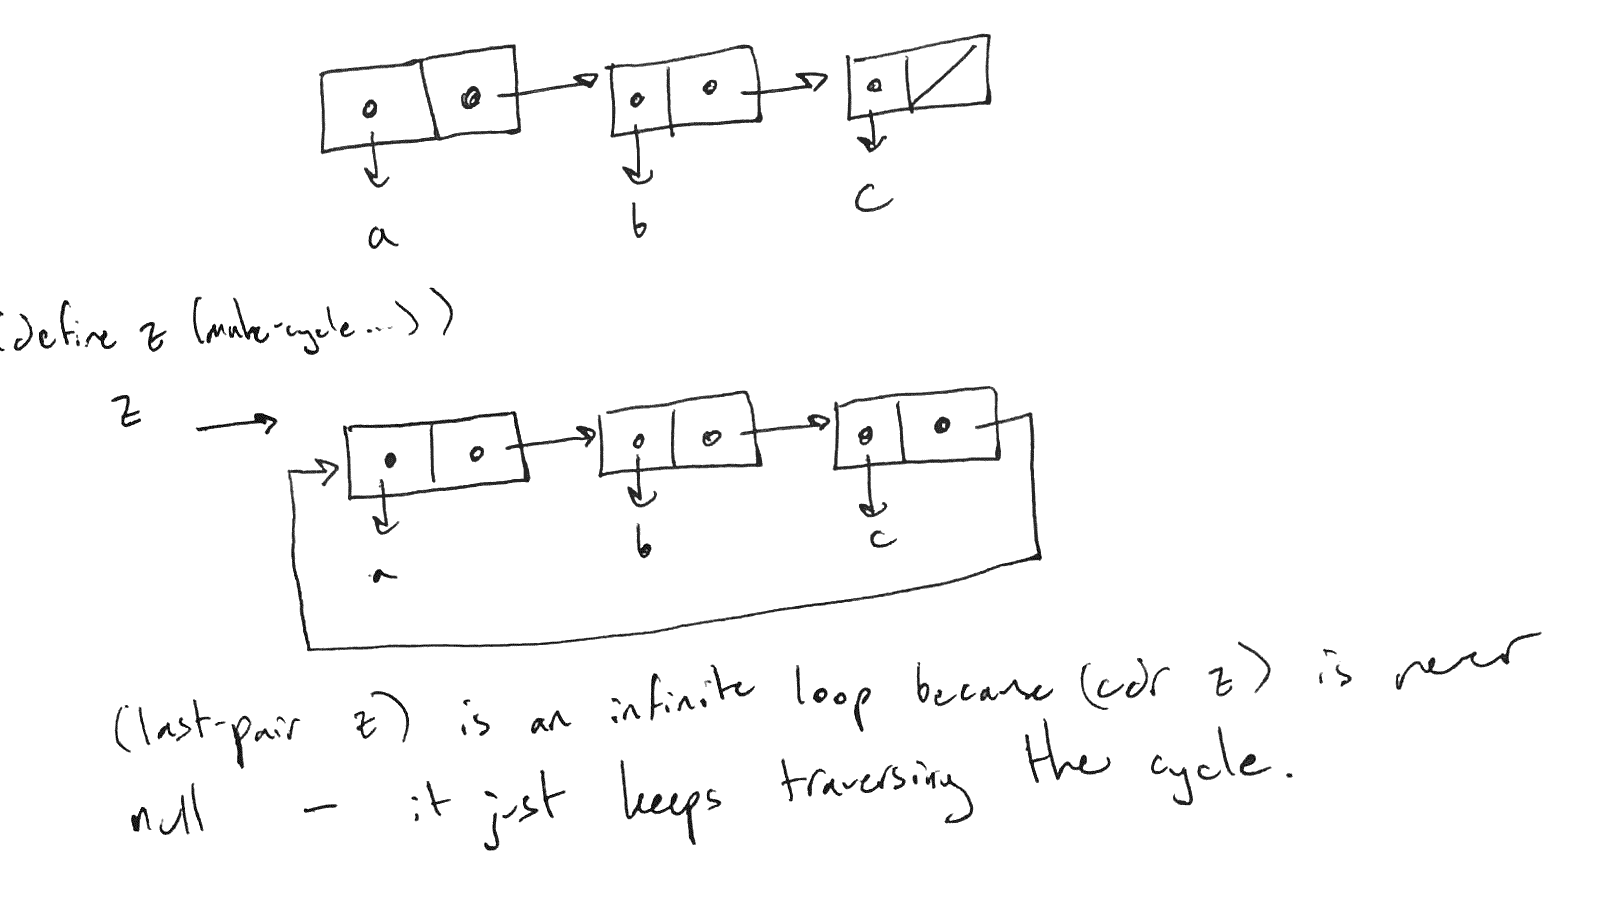 a
b
c
(define z (make-cycle...))
z
a
b
c
(last-pair z) is an infinite loop because (cdr z) is never
null – it just keeps traversing the cycle.